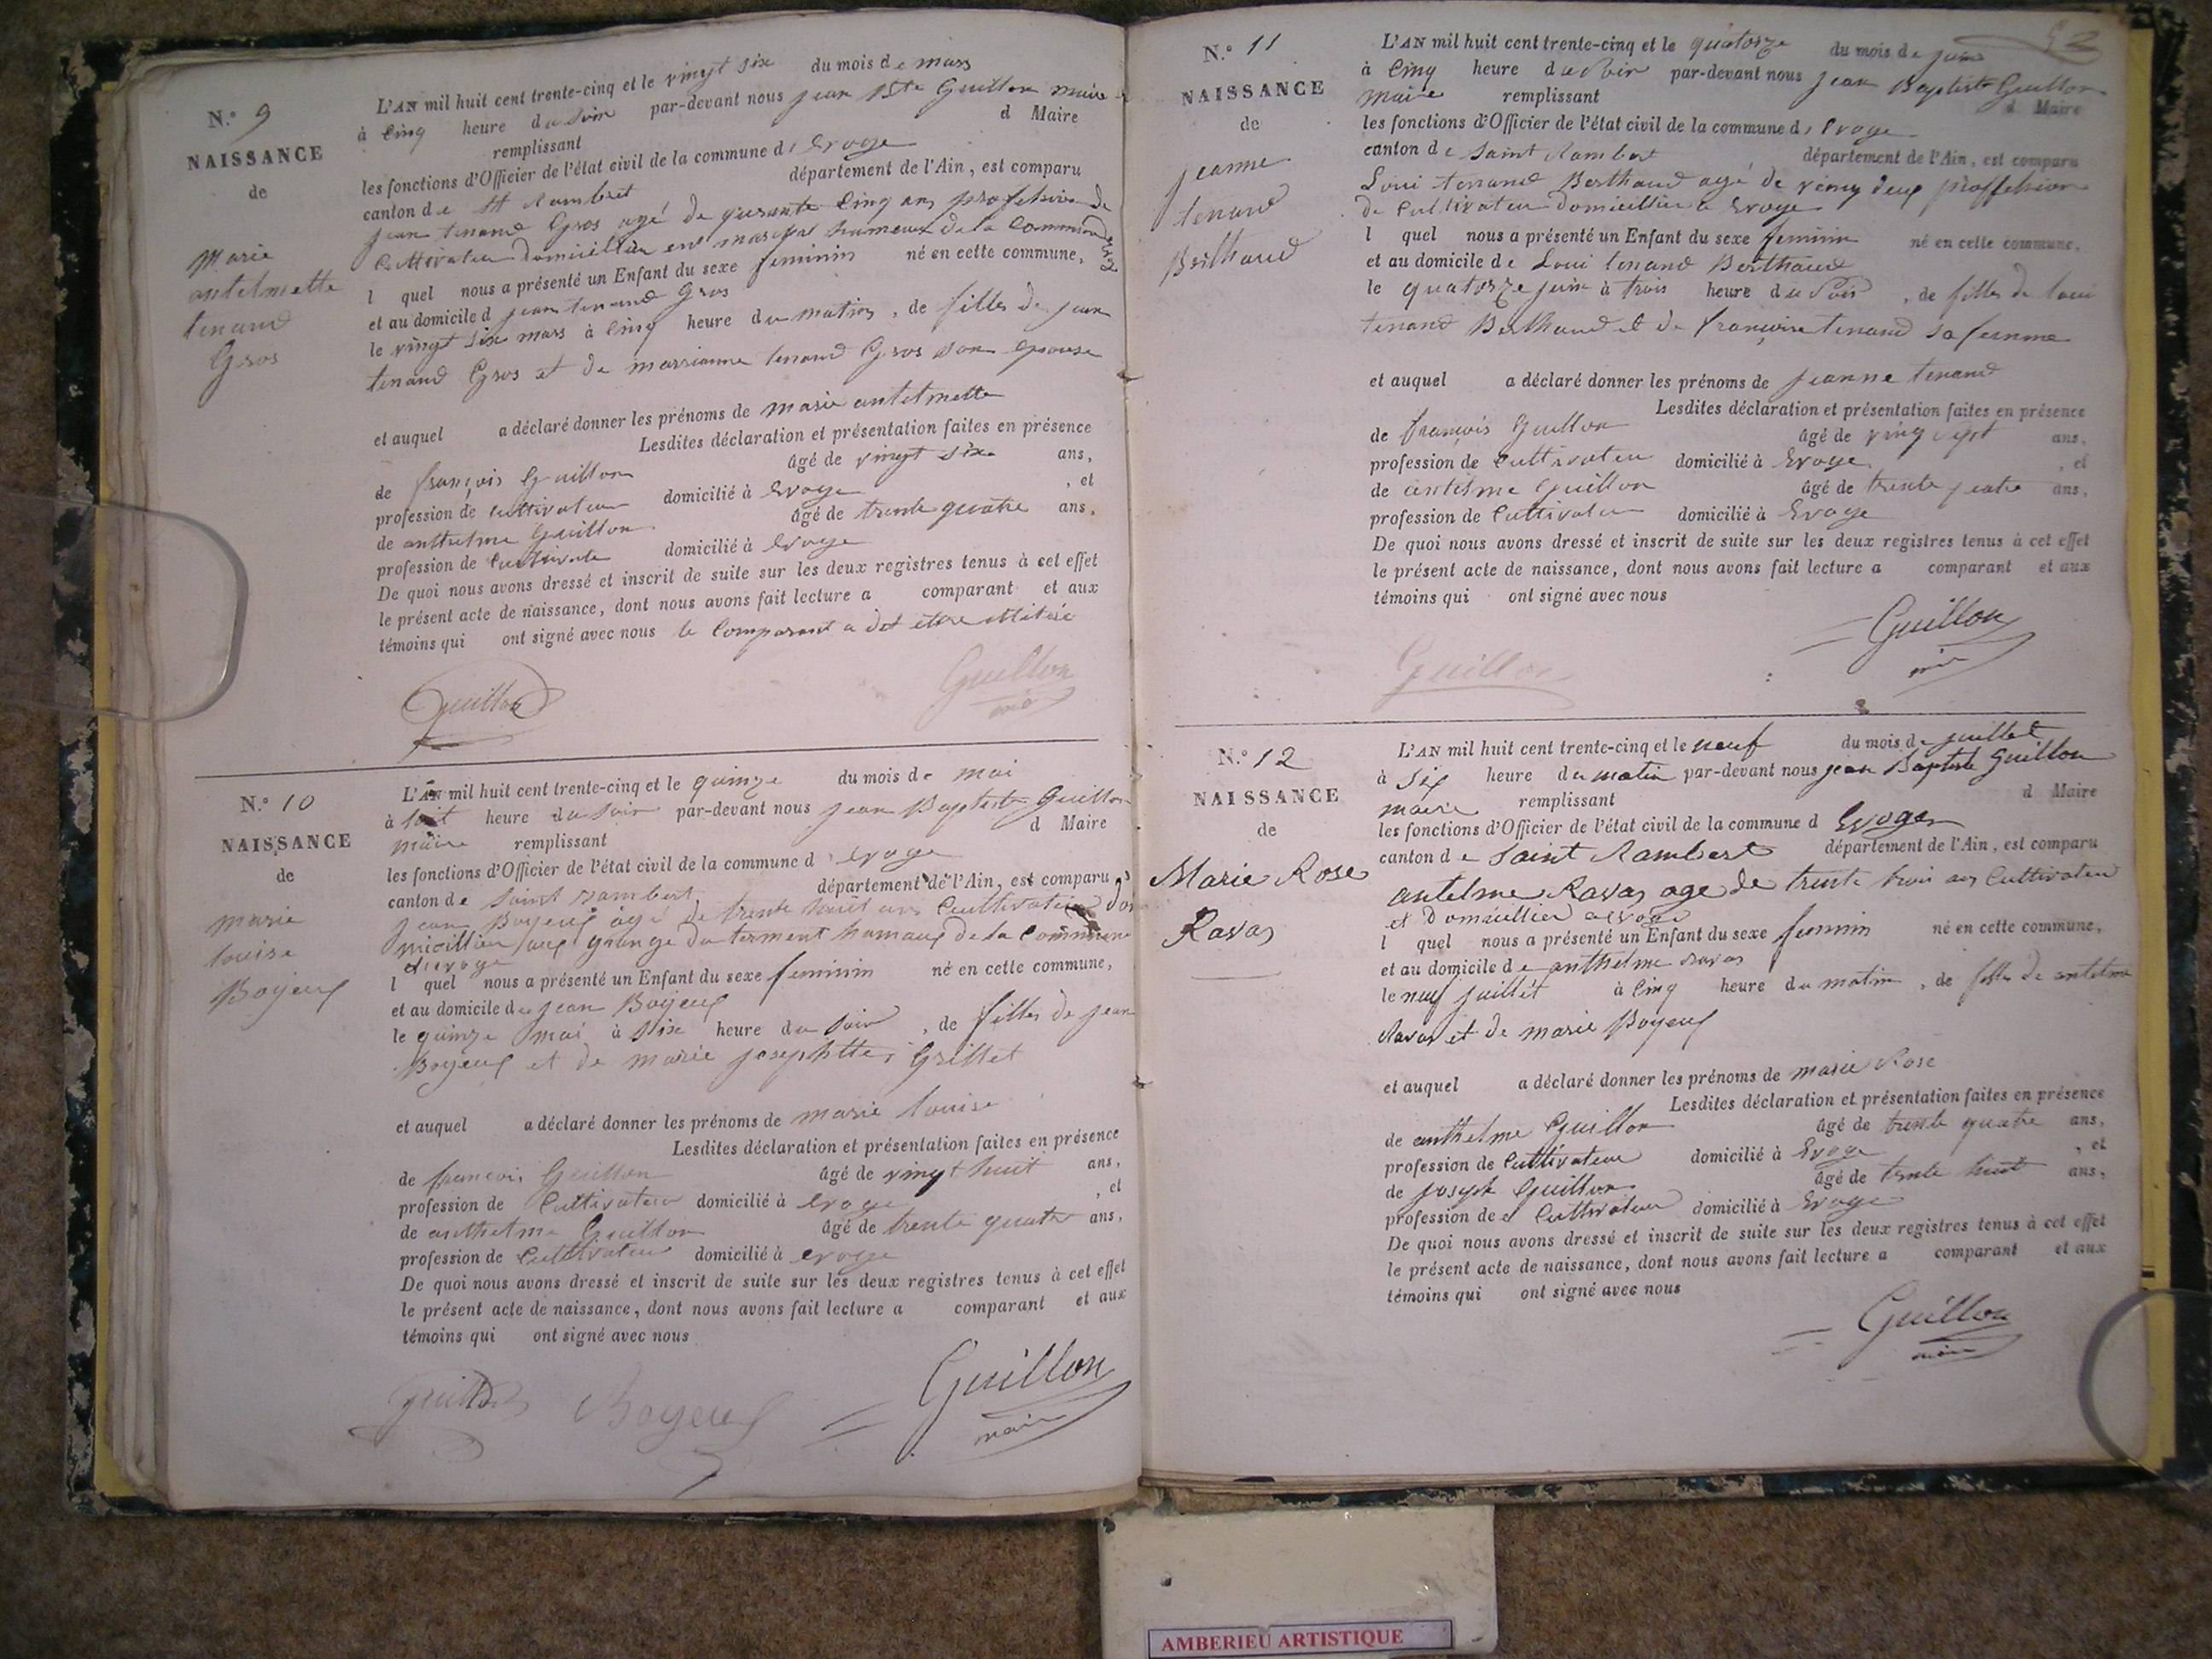 N.° 9
NAISSANCE
de
Marie
antelmette
tenand
Gros
L'AN mil huit cent trente-cinq et le vingt six du mois de mars
à Cinq heure du soir par-devant nous jean Bte Guillon maire
remplissant d Maire
les fonctions d'Officier de l'état civil de la commune d'Evoge
canton de St Rambret département de l'Ain, est comparu
jean tenand Gros agé de quarante Cinq ans profession de
Cultivateur domicillié hameux de la Commune
l quel nous a présenté un Enfant du sexe feminin né en cette commune,
et au domicile d jean tenand Gros
le vingt six mars à Cinq heure du matin, de filles de jean
tenand Gros et de marrianne tenand Gros son epouse
et auquel a déclaré donner les prénoms de marie antelmette
Lesdites déclaration et présentation faites en présence
de françois Guillon âgé de vingt six ans,
profession de cultivateur domicilié à Evoge, et
de anthelme Guillon âgé de trente quatre ans,
profession de Cultivate domicilié à Evoge
De quoi nous avons dressé et inscrit de suite sur les deux registres tenus à cet effet
le présent acte de naissance, dont nous avons fait lecture a comparant et aux
témoins qui ont signé avec nous le Comparant a dit etre
Guillon Guillon
N.° 10
NAISSANCE
de
marie
louise
Boyeux
L'AN mil huit cent trente-cinq et le quinze du mois de mai
à heure du soir par-devant nous jean Baptiste Guillon
maire remplissant d Maire
les fonctions d'Officier de l'état civil de la commune d'evoge
canton de saint rambert département de l'Ain, est comparu
jean Boyeux agé de trente huit ans Cultivateur do
micillier aux grange du terment hamaux de la Commune
d'evoge
l quel nous a présenté un Enfant du sexe feminin né en cette commune,
et au domicile de jean Boyeux
le quinze mai à six heure du soir, de filles de jean
Boyeux et de marie josephtte Grillet
et auquel a déclaré donner les prénoms de marie louise
Lesdites déclaration et présentation faites en présence
de françois Guillon âgé de vingt huit ans,
profession de Cultivateur domicilié à evoge, et
de anthelme Guillon âgé de trente quatre ans,
profession de Cultivateur domicilié à evoge
De quoi nous avons dressé et inscrit de suite sur les deux registres tenus à cet effet
le présent acte de naissance, dont nous avons fait lecture a comparant et aux
témoins qui ont signé avec nous
Guillon Boyeux Guillon
maire
N.° 11
NAISSANCE
de
jeanne
tenand
Berthaud
L'AN mil huit cent trente-cinq et le quatorze du mois de juin
à Cinq heure du soir par-devant nous jean Baptiste Guillon
maire remplissant d Maire
les fonctions d'Officier de l'état civil de la commune d'Evoge
canton de saint Rambert département de l'Ain, est comparu
Loui tenand Berthaud agé de ving deux proffession
de Cultivateur domicillier a Evoge
l quel nous a présenté un Enfant du sexe feminin né en cette commune,
et au domicile de Loui tenand Berthaud
le quatorze juin à trois heure du soir, de filles de loui
tenand Berthaud et de françoise tenand sa femme
et auquel a déclaré donner les prénoms de jeanne tenand
Lesdites déclaration et présentation faites en présence
de françois Guillon âgé de ving sept ans,
profession de Cultivateur domicilié à Evoge, et
de antelme Guillon âgé de trente ans,
profession de Cultivateur domicilié à Evoge
De quoi nous avons dressé et inscrit de suite sur les deux registres tenus à cet effet
le présent acte de naissance, dont nous avons fait lecture a comparant et aux
témoins qui ont signé avec nous
Guillon Guillon
N.° 12
NAISSANCE
de
Marie Rose
Ravas
L'AN mil huit cent trente-cinq et le neuf du mois de juillet
à six heure du matin par-devant nous jean Baptiste Guillon
maire remplissant d Maire
les fonctions d'Officier de l'état civil de la commune d Evoges
canton de saint Rambert département de l'Ain, est comparu
antelme Ravas age de trente trois ans Cultivateur
et domicillier a evoge
l quel nous a présenté un Enfant du sexe feminin né en cette commune,
et au domicile de anthelme ravas
le neuf juillet à Cinq heure du matin, de filles de antelme
Ravas et de marie Boyeux
et auquel a déclaré donner les prénoms de marie Rose
Lesdites déclaration et présentation faites en présence
de anthelme Guillon âgé de trente quatre ans,
profession de Cultivateur domicilié à Evoge, et
de joseph Guillon âgé de trente huit ans,
profession de Cultivateur domicilié à Evoge
De quoi nous avons dressé et inscrit de suite sur les deux registres tenus à cet effet
le présent acte de naissance, dont nous avons fait lecture a comparant et aux
témoins qui ont signé avec nous
Guillon
maire
AMBERIEU ARTISTIQUE